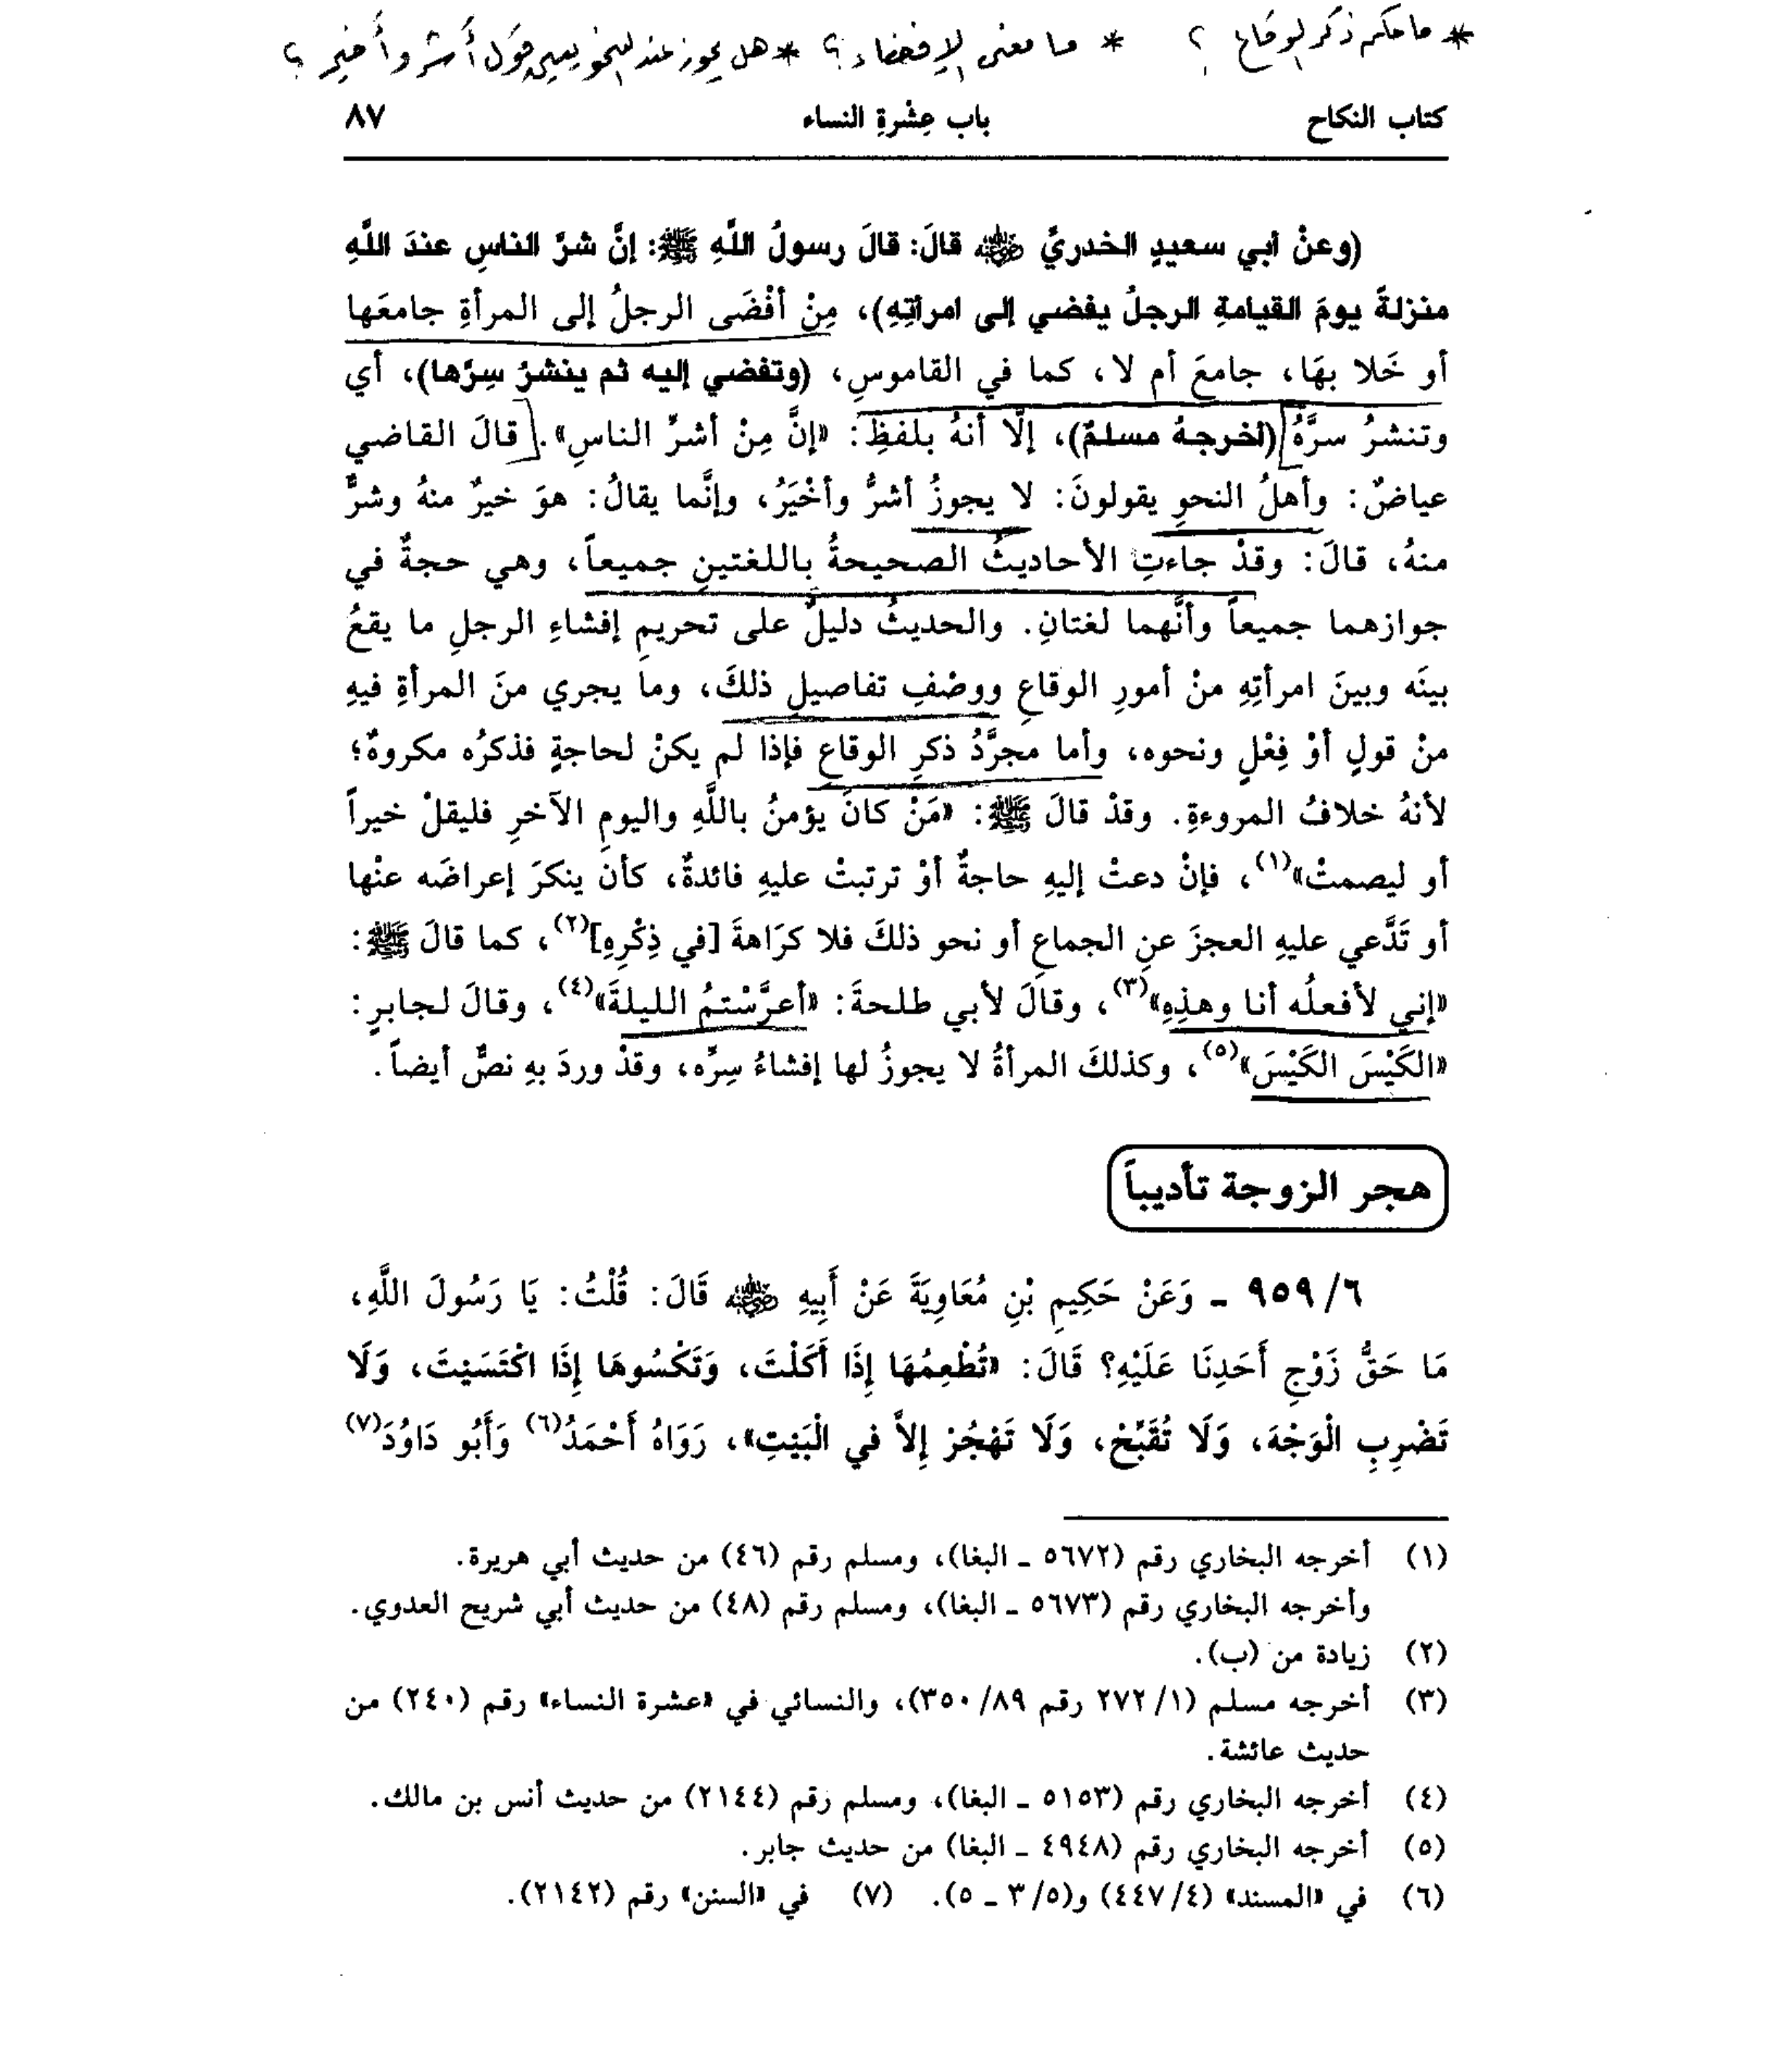 * ما حكم ذكر الوقاع ؟ * ما معنى الإفضاء ؟ * هل يجوز عند النحويين قول أشر وأخير ؟
كتاب النكاح باب عِشْرةِ النساء ٨٧
(وعنْ أبي سعيدٍ الخدريِّ ﵁ قالَ: قالَ رسولُ اللَّهِ ﷺ: إنَّ شرَّ الناسِ عندَ اللَّهِ
منزلةً يومَ القيامةِ الرجلُ يفضي إلى امرأتِهِ)، مِنْ أفْضَى الرجلُ إلى المرأةِ جامعَها
أو خَلا بهَا، جامعَ أم لا، كما في القاموسِ، (وتفضي إليه ثم ينشرُ سِرَّها)، أي
وتنشرُ سرَّهُ [(أخرجهُ مسلمٌ)، إلَّا أنهُ بلفظِ: «إنَّ مِنْ أشرِّ الناسِ».] قالَ القاضي
عياضٌ: وأهلُ النحوِ يقولونَ: لا يجوزُ أشرُّ وأخْيَرُ، وإنَّما يقالُ: هوَ خيرٌ منهُ وشرٌّ
منهُ، قالَ: وقدْ جاءتِ الأحاديثُ الصحيحةُ باللغتينِ جميعاً، وهي حجةٌ في
جوازهما جميعاً وأنَّهما لغتانِ. والحديثُ دليلٌ على تحريمِ إفشاءِ الرجلِ ما يقعُ
بينَه وبينَ امرأتِهِ منْ أمورِ الوقاعِ ووصْفِ تفاصيلِ ذلكَ، وما يجري منَ المرأةِ فيهِ
منْ قولٍ أوْ فِعْلٍ ونحوه، وأما مجرَّدُ ذكرِ الوقاعِ فإذا لم يكنْ لحاجةٍ فذكرُه مكروهٌ؛
لأنهُ خلافُ المروءةِ. وقدْ قالَ ﷺ: «مَنْ كانَ يؤمنُ باللَّهِ واليومِ الآخرِ فليقلْ خيراً
أو ليصمتْ»(١)، فإنْ دعتْ إليهِ حاجةٌ أوْ ترتبتْ عليهِ فائدةٌ، كأن ينكرَ إعراضَه عنْها
أو تَدَّعي عليهِ العجزَ عنِ الجماعِ أو نحو ذلكَ فلا كرَاهةَ [في ذِكْرِهِ](٢)، كما قالَ ﷺ:
«إني لأفعلُه أنا وهذِهِ»(٣)، وقالَ لأبي طلحةَ: «أعرَّسْتمُ الليلةَ»(٤)، وقالَ لجابرٍ:
«الكَيْسَ الكَيْسَ»(٥)، وكذلكَ المرأةُ لا يجوزُ لها إفشاءُ سِرِّه، وقدْ وردَ بهِ نصٌّ أيضاً.
هجر الزوجة تأديباً
٩٥٩/٦ ـ وَعَنْ حَكِيمِ بْنِ مُعَاوِيَةَ عَنْ أَبِيهِ ﵁ قَالَ: قُلْتُ: يَا رَسُولَ اللَّهِ،
مَا حَقُّ زَوْجِ أَحَدِنَا عَلَيْهِ؟ قَالَ: «تُطْعِمُهَا إِذَا أَكَلْتَ، وَتَكْسُوهَا إِذَا اكْتَسَيْتَ، وَلَا
تَضْرِبِ الْوَجْهَ، وَلَا تُقَبِّحْ، وَلَا تَهْجُرْ إِلاَّ في الْبَيْتِ»، رَوَاهُ أَحْمَدُ(٦) وَأَبُو دَاوُدَ(٧)
(١) أخرجه البخاري رقم (٥٦٧٢ ـ البغا)، ومسلم رقم (٤٦) من حديث أبي هريرة.
وأخرجه البخاري رقم (٥٦٧٣ ـ البغا)، ومسلم رقم (٤٨) من حديث أبي شريح العدوي.
(٢) زيادة من (ب).
(٣) أخرجه مسلم (١/ ٢٧٢ رقم ٨٩/ ٣٥٠)، والنسائي في «عشرة النساء» رقم (٢٤٠) من
حديث عائشة.
(٤) أخرجه البخاري رقم (٥١٥٣ ـ البغا)، ومسلم رقم (٢١٤٤) من حديث أنس بن مالك.
(٥) أخرجه البخاري رقم (٤٩٤٨ ـ البغا) من حديث جابر.
(٦) في «المسند» (٤/ ٤٤٧) و(٥/ ٣ ـ ٥). (٧) في «السنن» رقم (٢١٤٢).